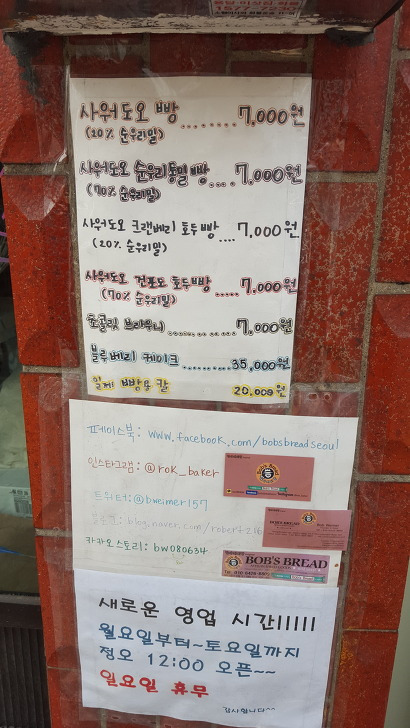 1577-7230
사워도오 빵........7,000원
(20% 순우리밀)
사워도오 순우리통밀빵....7,000원
(70% 순우리밀)
사워도오 크랜베리 호두빵....7,000원
(20% 순우리밀)
사워도오 건포도 호두빵.....7,000원
(70% 순우리밀)
초콜릿 브라우니...............7,000원
블루베리 케이크..........35,000원
빵용 칼 20,000원
페이스북: www.facebook.com/bobsbreadseoul
인스타그램: @rok_baker
트위터: @bweimer157
블로그: blog.naver.com/robert216
카카오스토리: bw080634
BOB'S BREAD
새로운 영업 시간!!!!!
월요일부터~토요일까지
정오 12:00 오픈~~
일요일 휴무
감사합니다~~